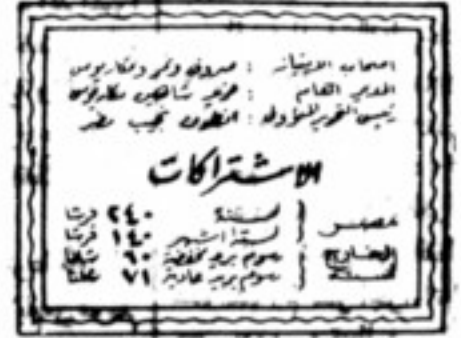 اصحاب الامتياز : صروف ونمر ومكاريوس
المدير العام : فوزي شاهين مكاريوس
رئيس التحرير المسؤول : انطون نجيب مطر
الاشتراكات
مصر لسنة ٢٤٠ قرشا
لستة اشهر ١٤٠ قرشا
الخارج رسوم بريد مخفضة ٦٠ شلنا
لسنة رسوم بريد عادية ٧١ شلنا